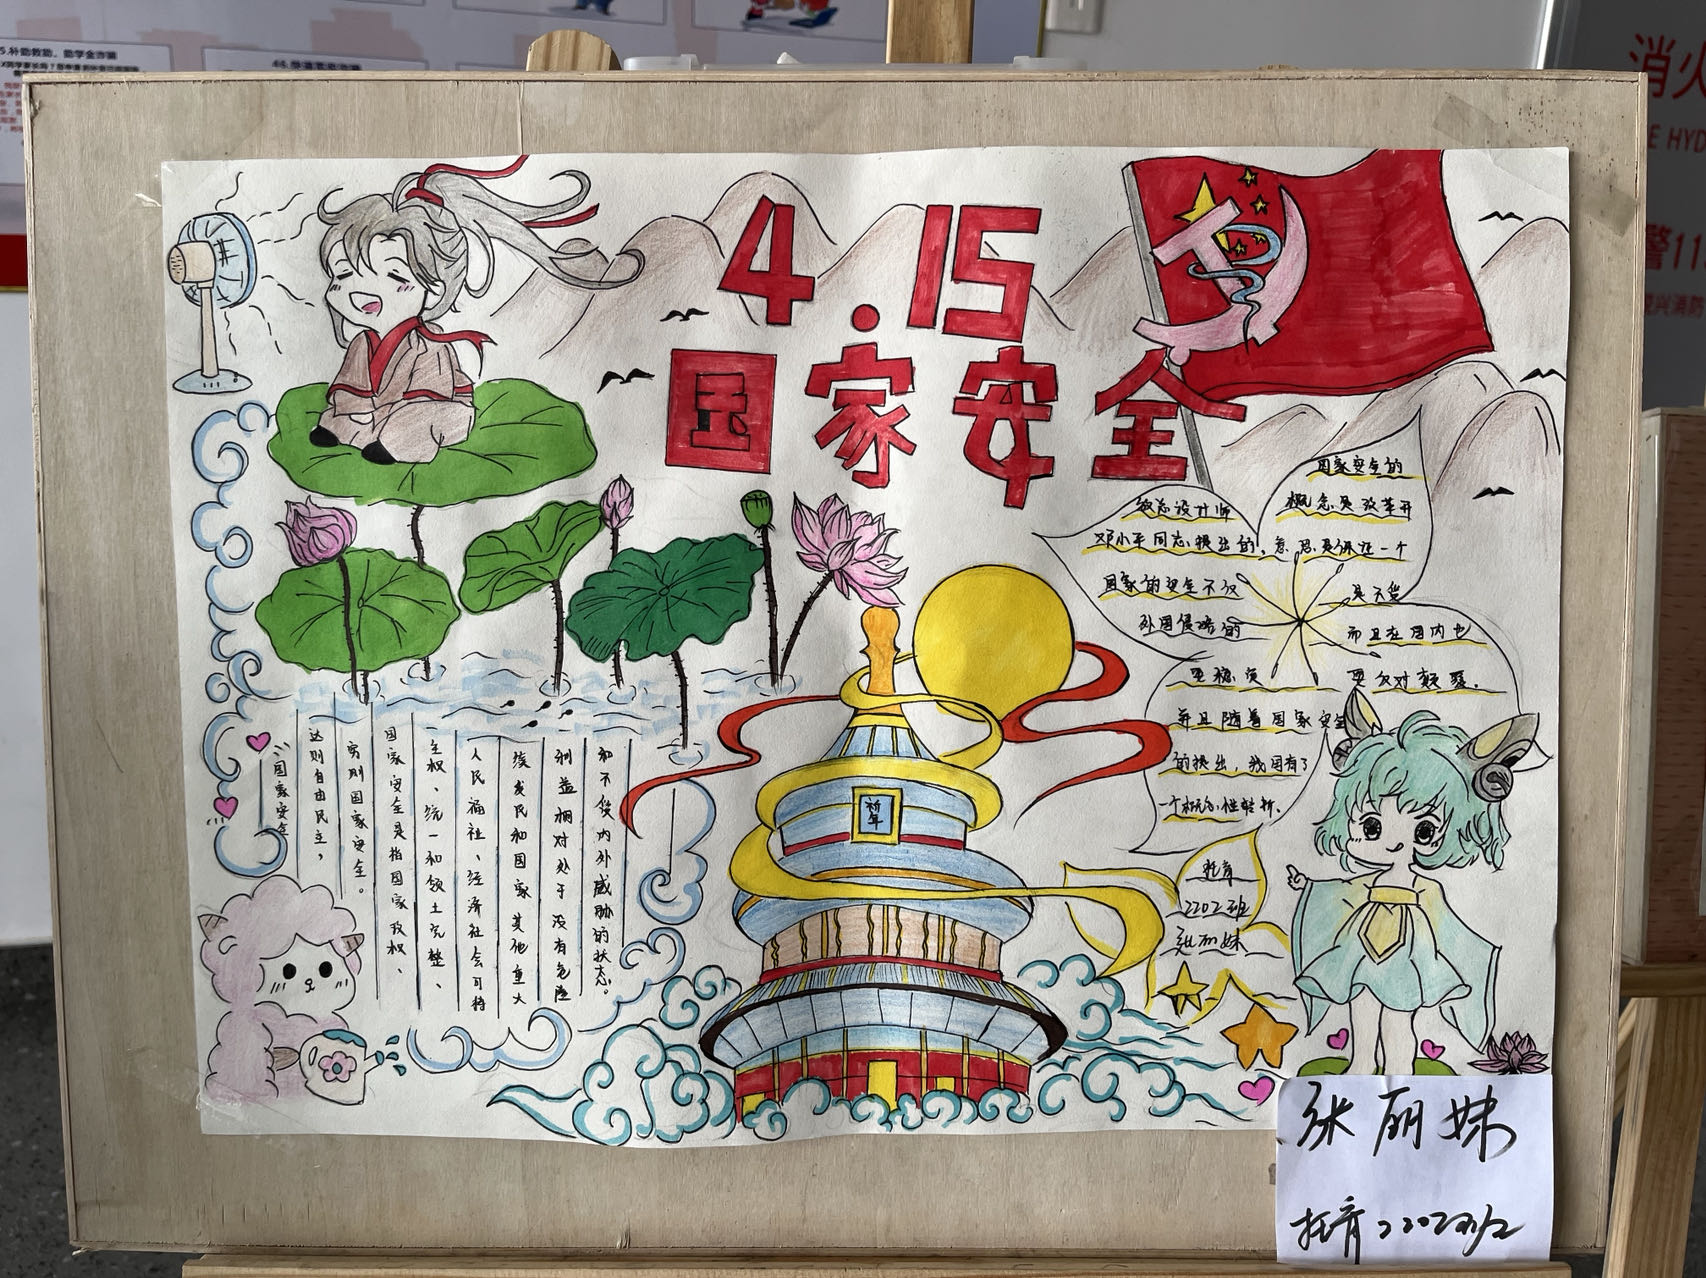 4.15
国家安全
国家安全的
概念是改革开
放总设计师
邓小平同志提出的，意思是保证一个
国家的安全不仅
是不受
外国侵略的
而且在国内也
要稳定
要反对颠覆。
并且随着国家安全
的提出，我国有了
一个概念性转折。
托育
2202班
张丽妹
祈年
国家安全
达则自由民主，
穷则国家安全。
国家安全是指国家政权、
主权、统一和领土完整、
人民福祉、经济社会可持
续发展和国家其他重大
利益相对处于没有危险
和不受内外威胁的状态。
张丽妹
托育2202班
5.补助救助、助学金诈骗
消火
E HYD
警11